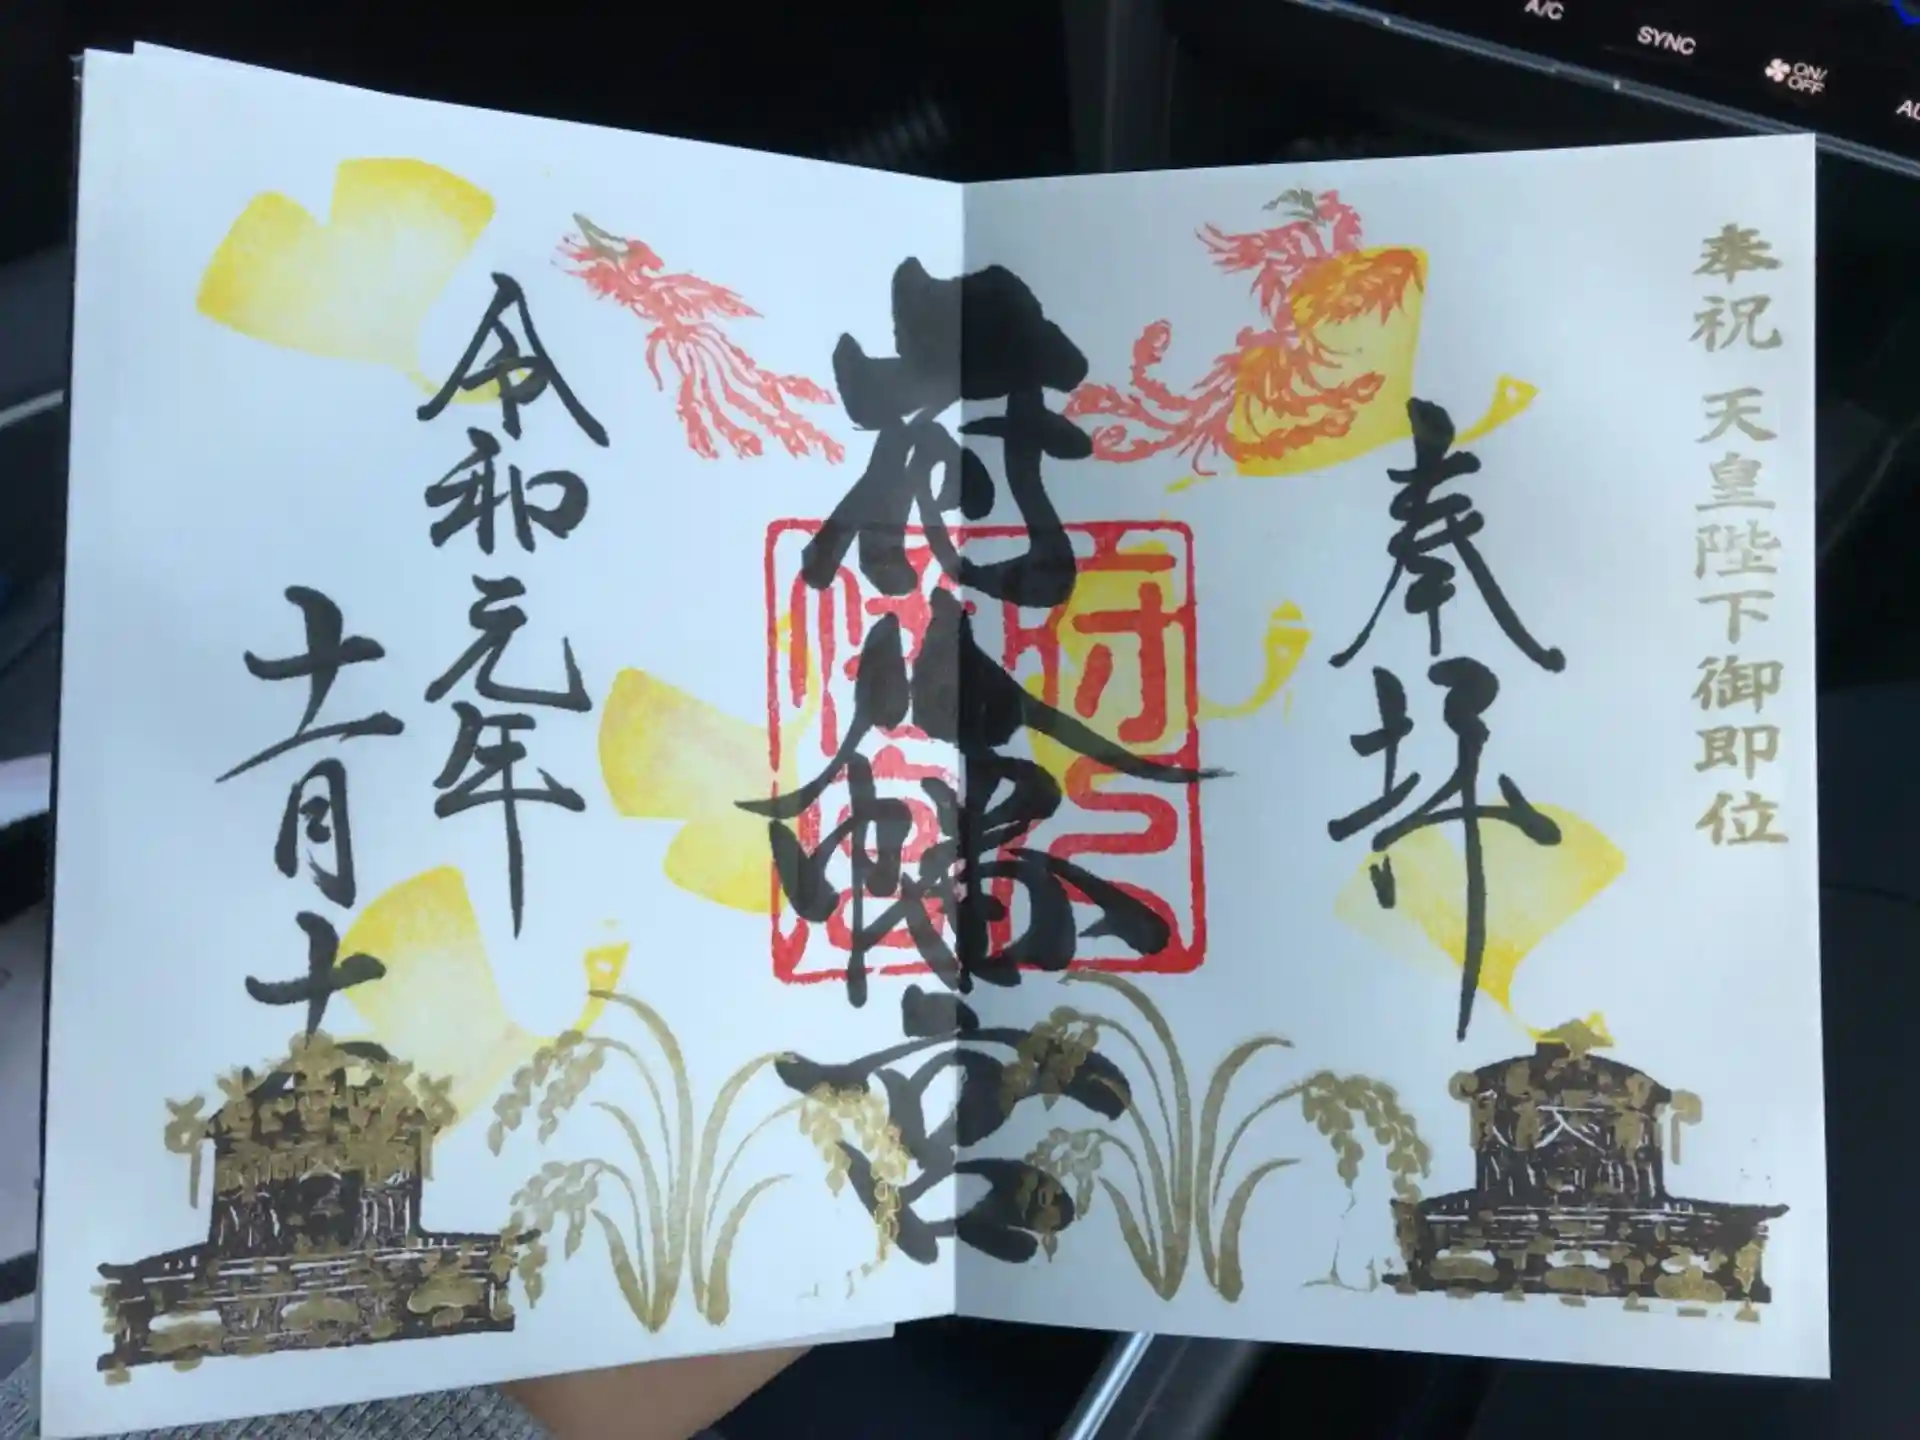 奉祝 天皇陛下御即位
奉拝
府八幡宮
府八幡宮
令和元年
十一月十
A/C
SYNC
ON/
OFF